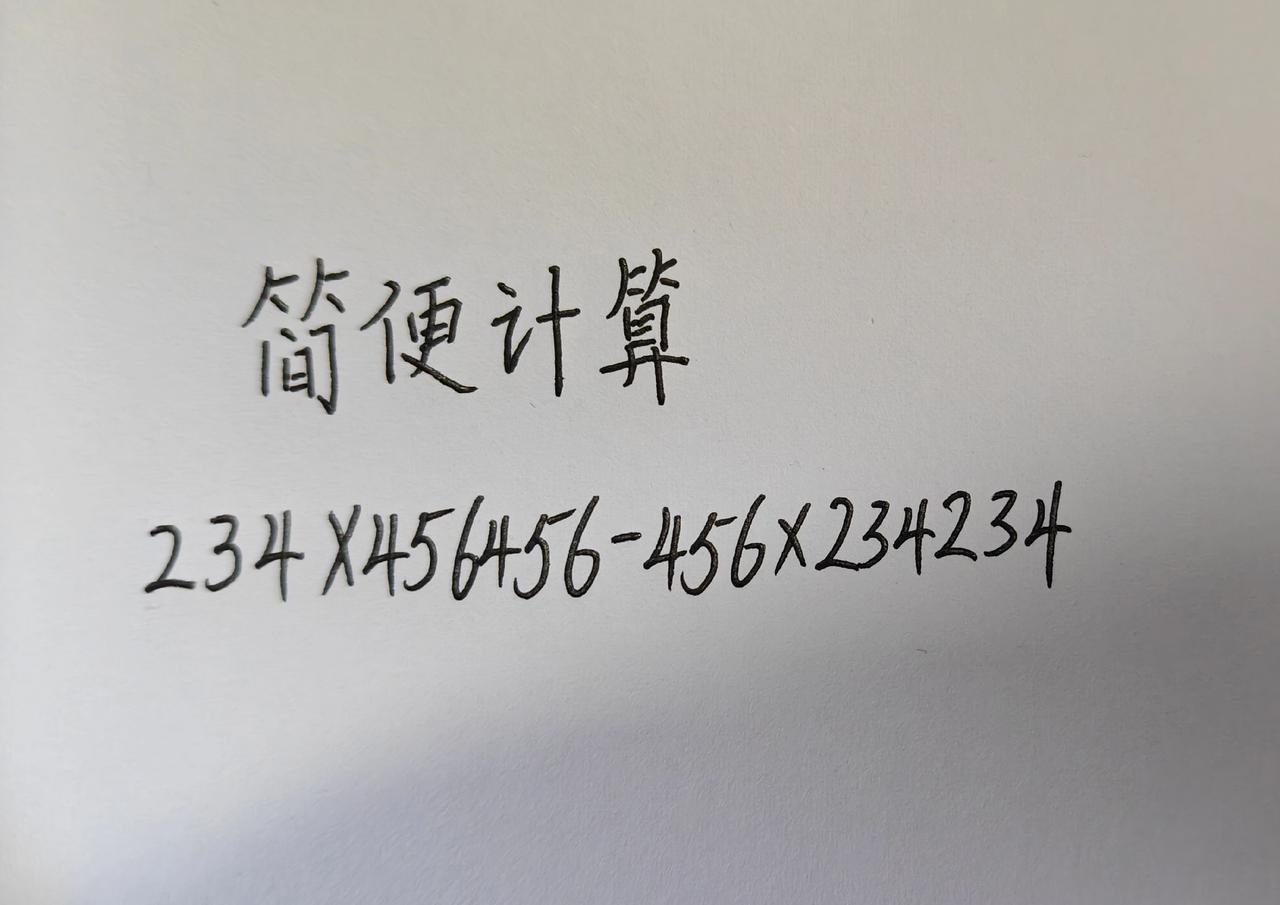 简便计算
234×456456-456×234234